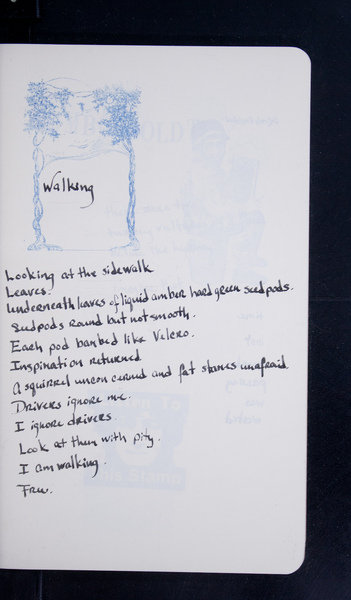 Walking
Looking at the sidewalk
Leaves.
Underneath leaves of liquid amber hard green seedpods.
Seedpods round but not smooth.
Each pod barbed like Velcro.
Inspiration returned
A squirrel unconcerned and fat stares unafraid.
Drivers ignore me.
I ignore drivers
Look at them with pity.
I am walking.
Free.